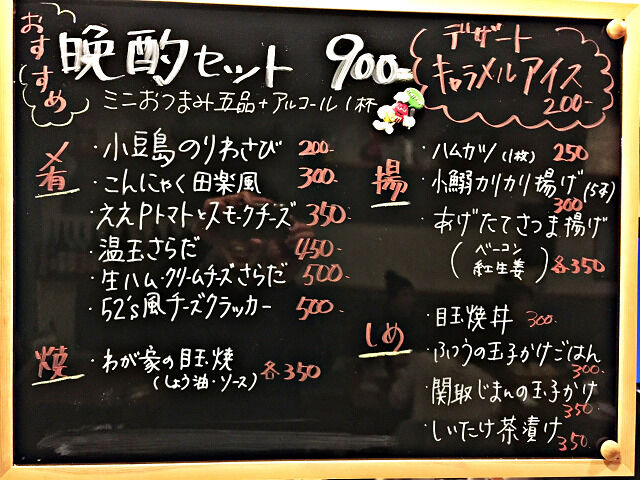 おすすめ
晩酌セット 900-
ミニおつまみ五品+アルコール1杯
デザート
キャラメルアイス
200-
肴
・小豆島のりわさび 200-
・こんにゃく田楽風 300-
・ええPトマトとスモークチーズ 350-
・温玉さらだ 450-
・生ハム・クリームチーズさらだ 500-
・52's風チーズクラッカー 500-
焼
・わが家の目玉焼
(しょう油・ソース) 各350
揚
・ハムカツ (1枚) 250
・小鰯カリカリ揚げ (5本)
300
・あげたてさつま揚げ
(ベーコン
紅生姜) 各350
しめ
・目玉焼丼 300-
・ふつうの玉子かけごはん
300-
・関取じまんの玉子かけ
350-
・しいたけ茶漬け
350-